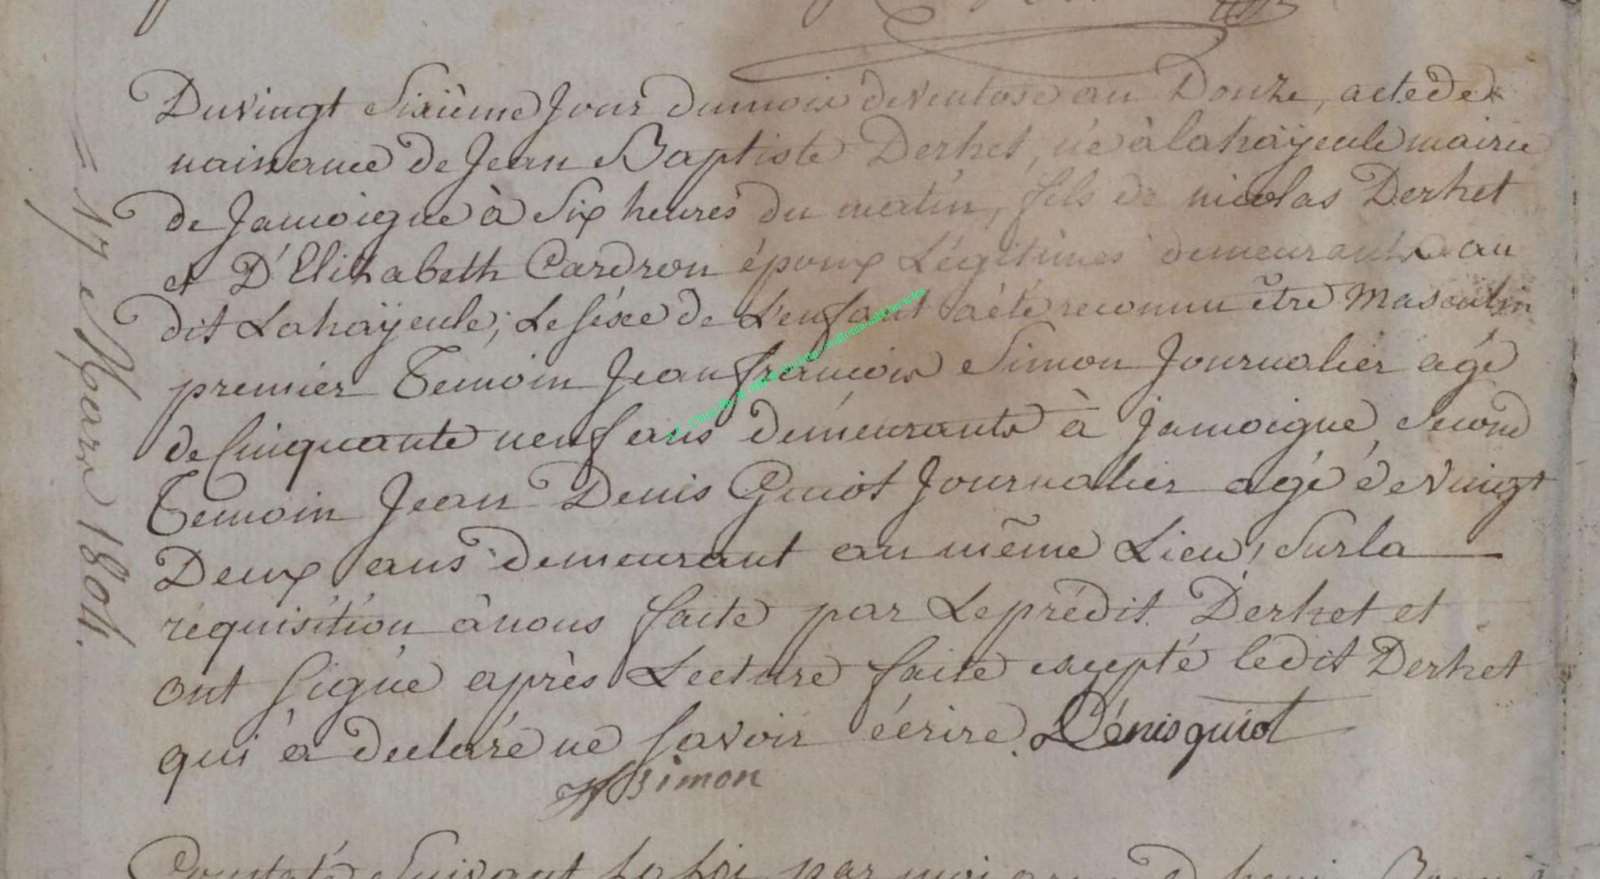 Du vingt Sixième Jour du mois de ventose an Douze, acte de
naisance de Jean Baptiste Derhet, né à lahaÿeule mairie
de Jamoigne à Six heures du matin, fils de nicolas Derhet
et D'Elizabeth Cardron époux Légitimes demeurants au
dit Lahaÿeule; Le séxe de L'enfant a été reconnu être Masculin
premier Temoin Jean françois Simon Journalier agé
de Cinquante neuf ans demeurants à Jamoigne, Second
Temoin Jean Denis Guiot Journalier agé de vingt
Deux ans demeurant au même Lieu, Sur la
requisition à nous faite par Le prédit Derhet et
ont signé après Lecture faite excepté ledit Derhet
qui a declaré ne savoir écrire. Dénis guiot
JfSimon
= 17 Mars 1804.
Constaté Suivant la Loi par moi